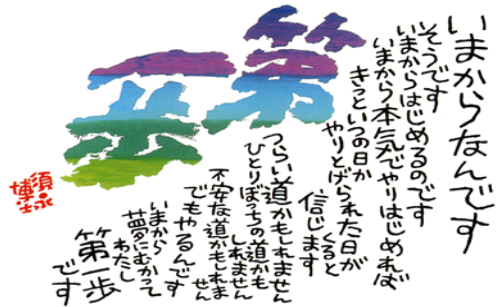 いまからなんです
そうです
いまからはじめるのです
いまから本気でやりはじめれば
きっといつの日か
やりとげられた日が
くると
信じます
第
一歩
つらい道かもしれません
ひとりぼっちの道かも
しれません
不安な道かもしれま
せん
でもやるんです
いまから
夢にむかって
わたし
第一歩
です
須永
博士